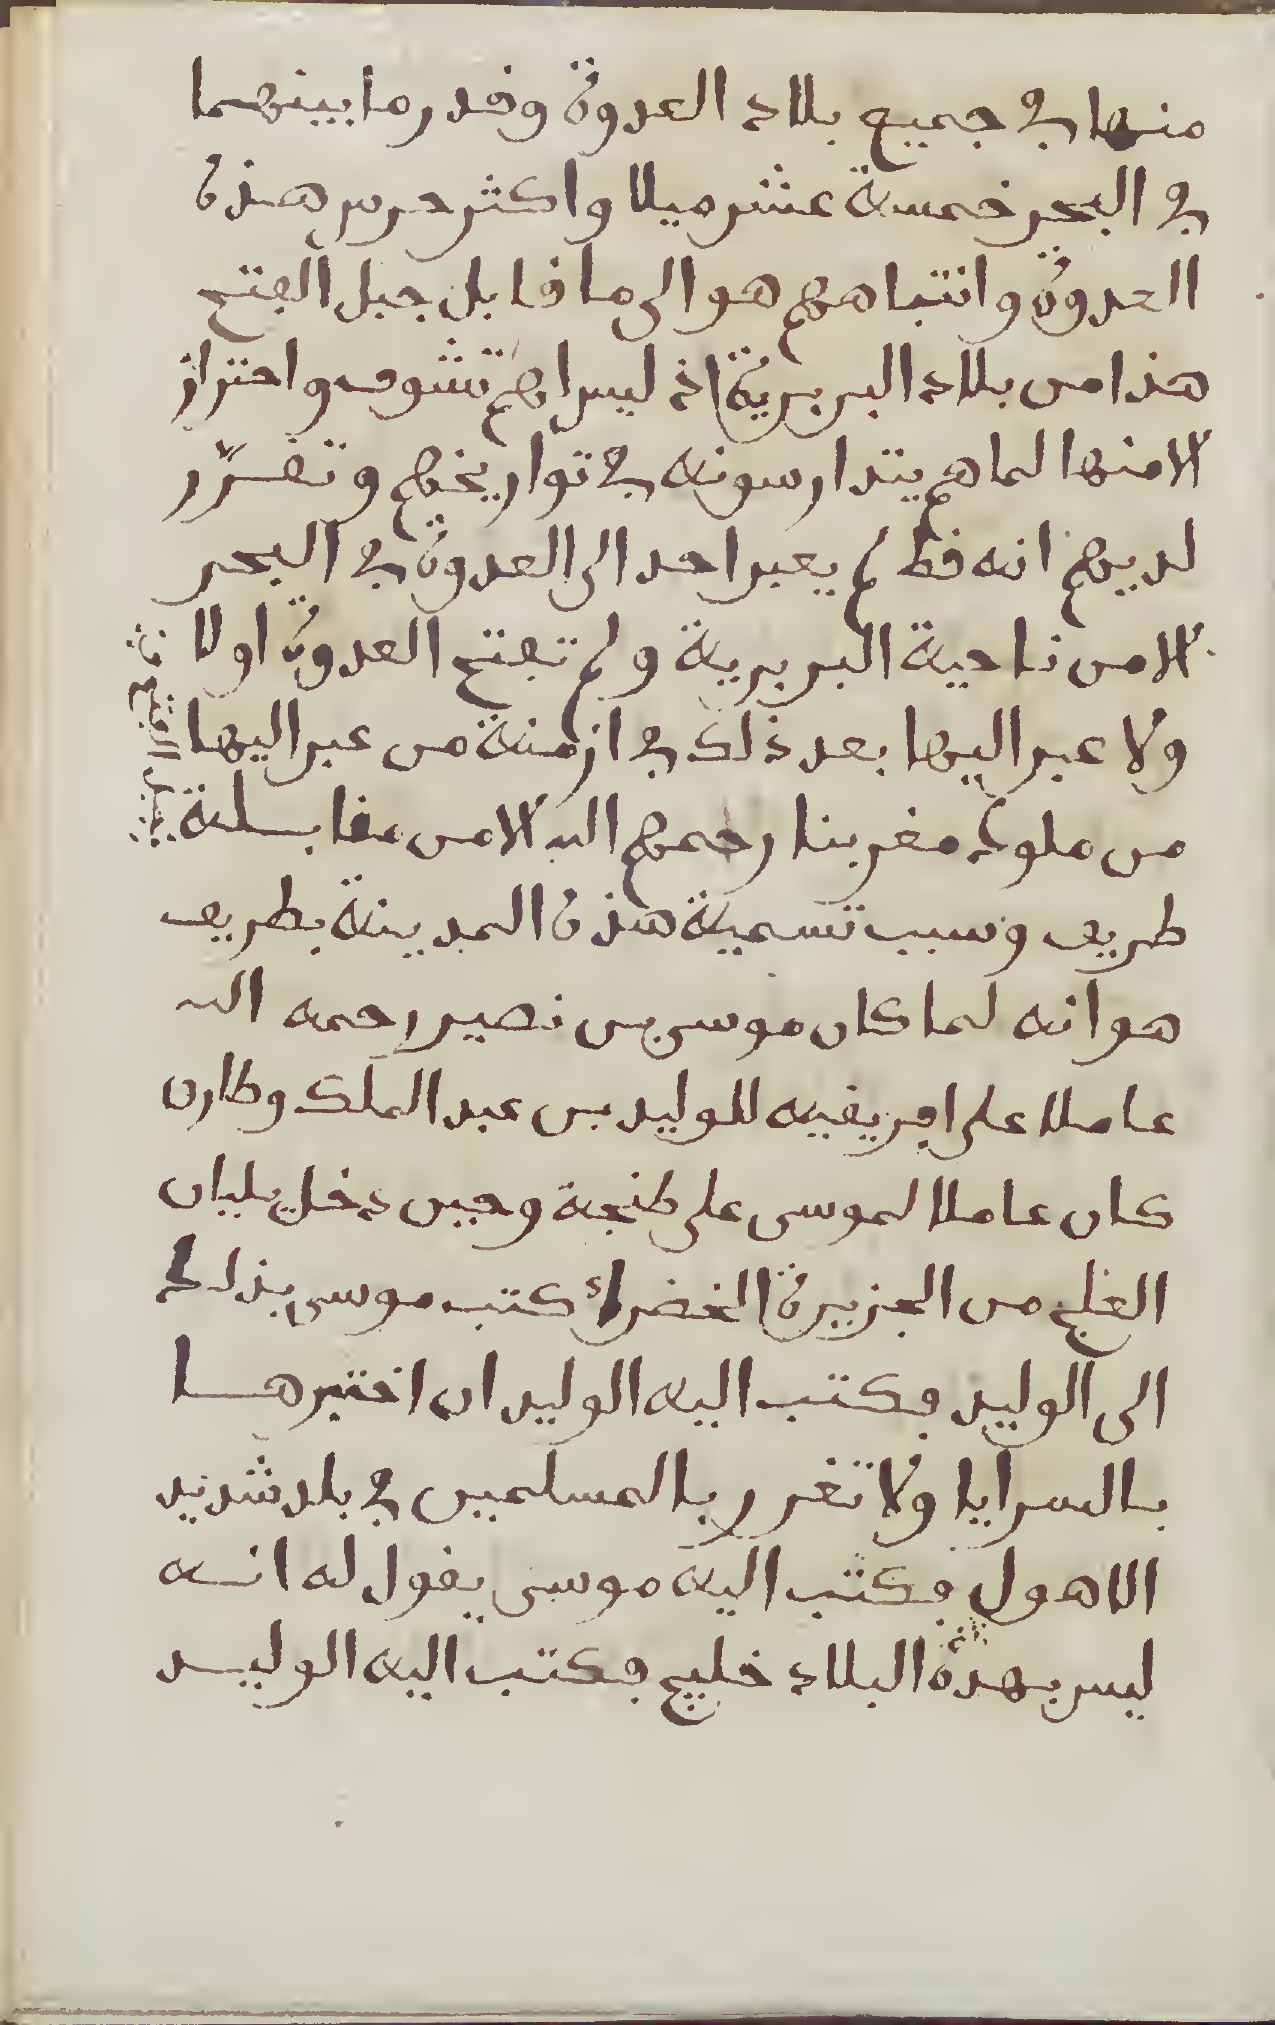 منها في جميع بلاد العدوة وقدر ما بينهما
في البحر خمسة عشر ميلا واكثر حرس هذه
العدوة وانتباههم هو الى ما قابل جبل الفتح
هذا من بلاد البربرية اذ ليس لهم تشوف واحتراز
الا منها لما هم يتدارسونه في تواريخهم وتقرّر
لديهم انه قط لم يعبر احد الى العدوة في البحر
الا من ناحية البربرية ولم تفتح العدوة اولا
ولا عبر اليها بعد ذلك في ازمنة من عبر اليها
من ملوك مغربنا رحمهم الله الا من مقابلة
طريف وسبب تسمية هذه المدينة بطريف
هو انه لما كان موسى بن نصير رحمه الله
عاملا على افريقيه للوليد بن عبد الملك وطارق
كان عاملا لموسى على طنجة وحين دخل يليان
العلج من الجزيرة الخضراء كتب موسى بذلك
الى الوليد فكتب اليه الوليد ان اختبرها
بالسرايا ولا تغرر بالمسلمين في بلد شديد
الاهول فكتب اليه موسى يقول له انه
ليس بهذه البلاد خليج فكتب اليه الوليد